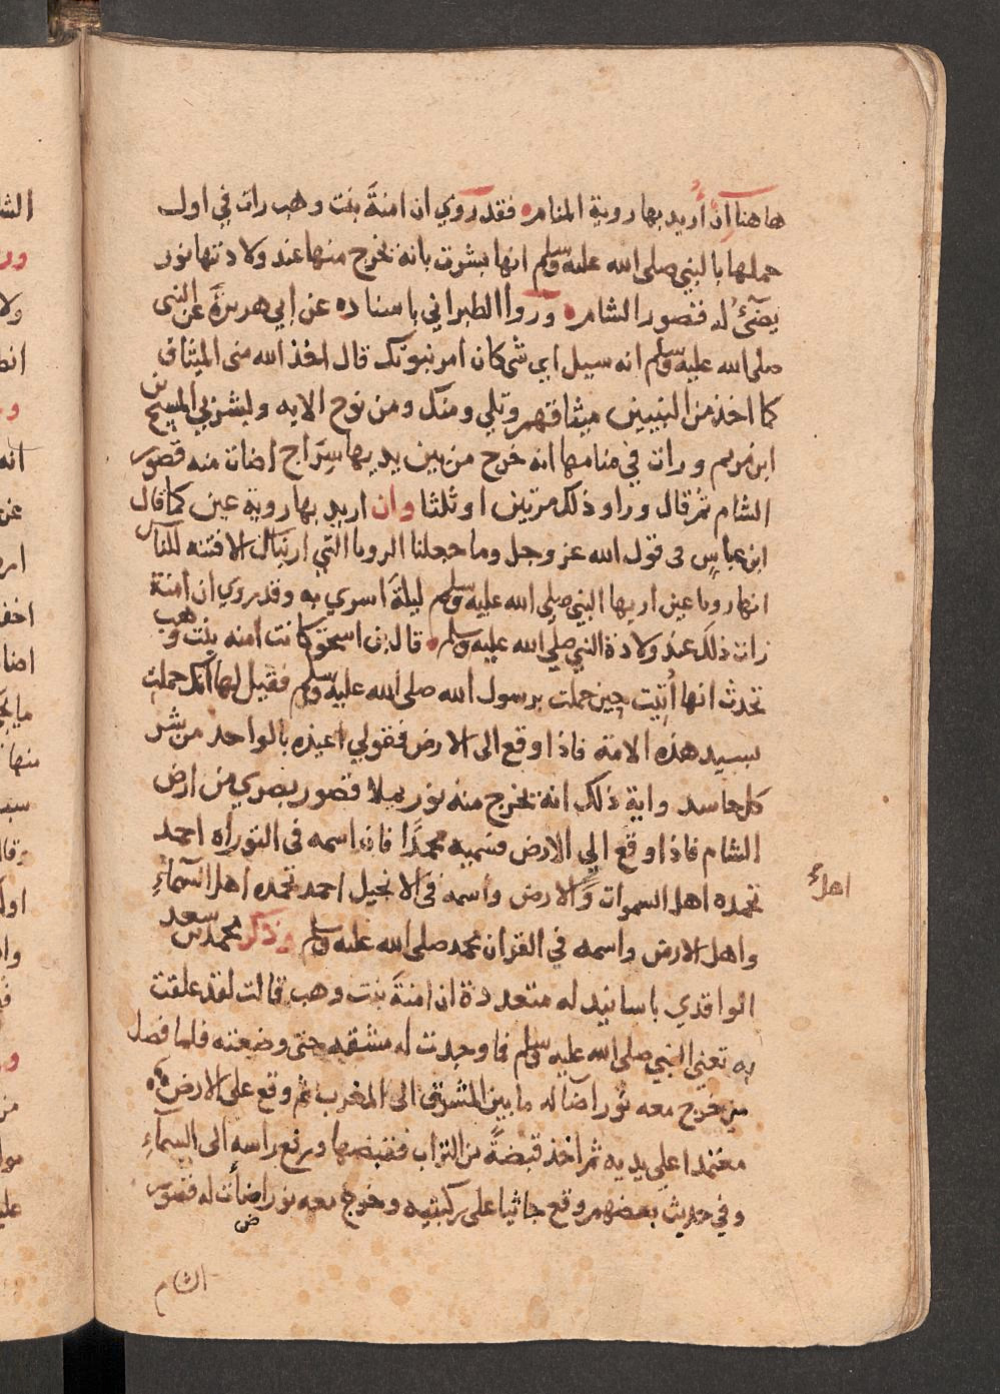 هاهنا ان أريد بها روية المنام فقد روي ان امنةَ بنت وهب رات في اول
حملها بالنبي صلى الله عليه وسلم انها بشرت بانه يخرج منها عند ولادتها نور
يضئ له قصور الشام وروا الطبراني باسناده عن ابي هريرة عن النبي
صلى الله عليه وسلم انه سيل اي شي كان امر نبوتك قال اخذ الله مني الميثاق
كما اخذ من النبيين ميثاقهم وتلي ومنك ومن نوح الايه وبشر بي المسيح بن
ابن مريم ورات في منامها انه خرج من بين يديها سراج اضات منه قصور
الشام ثم قال وراو ذلك مرتين او ثلثا وان اريد بها روية عين كما قال
ابن عباس في قول الله عز وجل وما جعلنا الرويا التي اريناك الا فتنه للناس
انها رويا عين اريها النبي صلى الله عليه وسلم ليلةَ اسري به وقد روي ان امنة
رات ذلك عند ولادة النبي صلى الله عليه وسلم قال بن اسحق كانت امنه بنت وهب
تحدث انها أتيت حين حملت برسول الله صلى الله عليه وسلم فقيل لها انك حملت
بسيد هذه الامة فاذا وقع الى الارض فقولي اعيذه بالواحد من شر
كل حاسد واية ذلك انه يخرج منه نور يملا قصور بصري من ارض
الشام فاذا وقع الي الارض فسميه محمدًا فان اسمه في التوراه احمد
تحمده اهل السموات والارض واسمه في الانجيل احمد تحمده اهل السمآءِ
اهل
واهل الارض واسمه في القران محمد صلى الله عليه وسلم وذكر محمد بن سعد
الواقدي باسانيد له متعددة ان امنةَ بنت وهب قالت لقد علقت
به تعني النبي صلى الله عليه وسلم فما وجدت له مشقه حتى وضعته فلما فصل
مني خرج معه نور اضا له ما بين المشرق الى المغرب ثم وقع على الارض
معتمدا على يديه ثم اخذ قبضةً من التراب فقبضها ورفع راسه الى السمآءِ
وفي حديث بعضهم وقع جاثيا على ركبتيه وخرج معه نور اضأت له قصور
ض
الشام